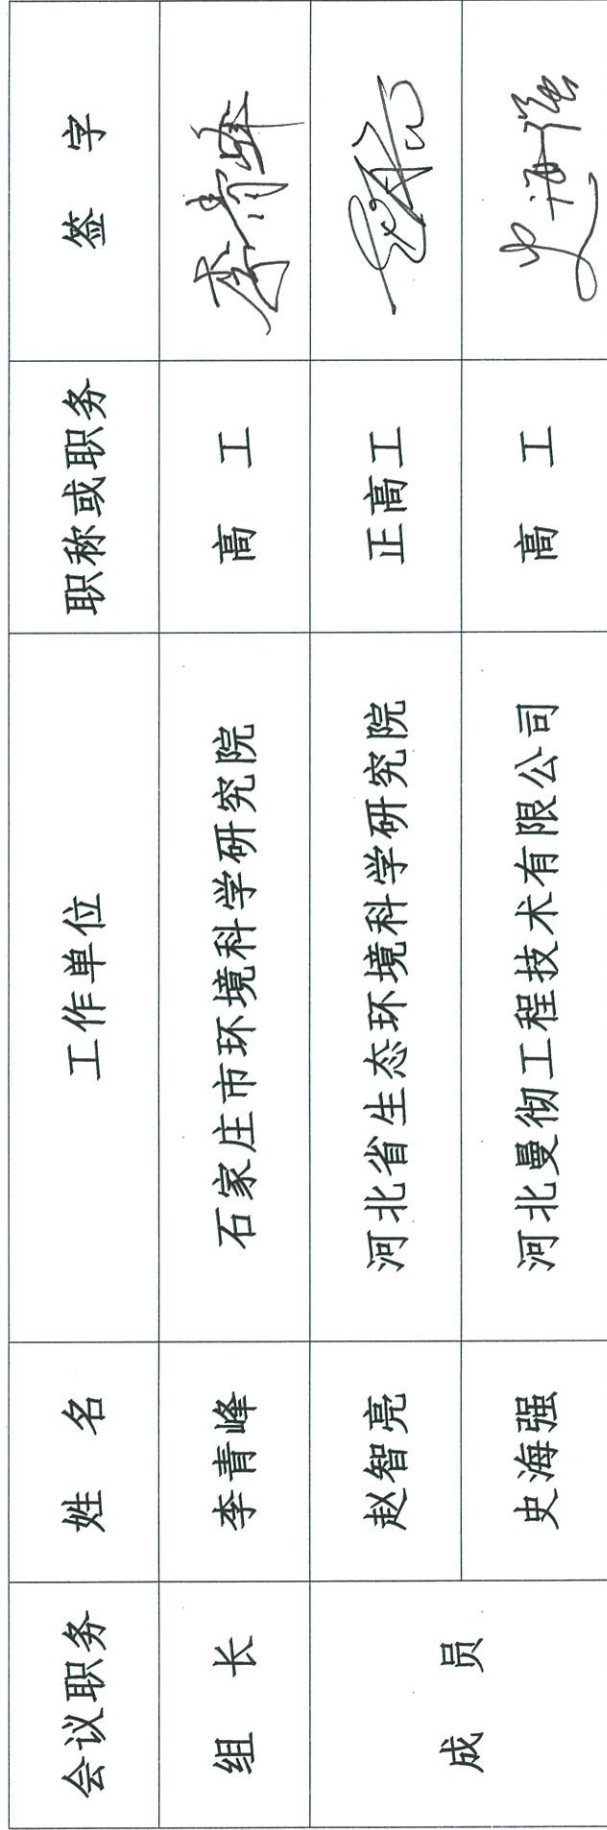 会议职务 姓 名 工作单位 职称或职务 签 字
组 长 李青峰 石家庄市环境科学研究院 高 工 李青峰
成 员 赵智亮 河北省生态环境科学研究院 正高工
史海强 河北曼彻工程技术有限公司 高 工 史海强